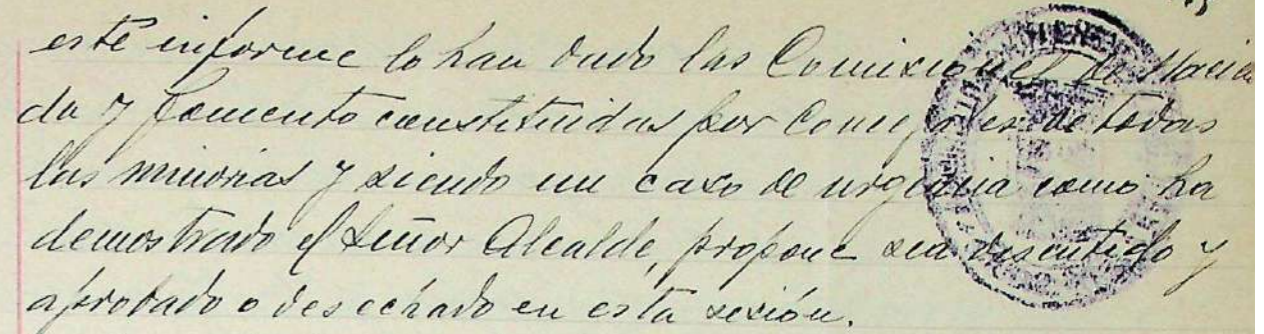 este informe lo han dado las Comisiones de Hacien
da y Fomento constituidas por Concejales de todas
las minorias y siendo un caso de urgencia como ha
demostrado el Señor Alcalde, propone sea discutido y
aprobado o desechado en esta sesión.